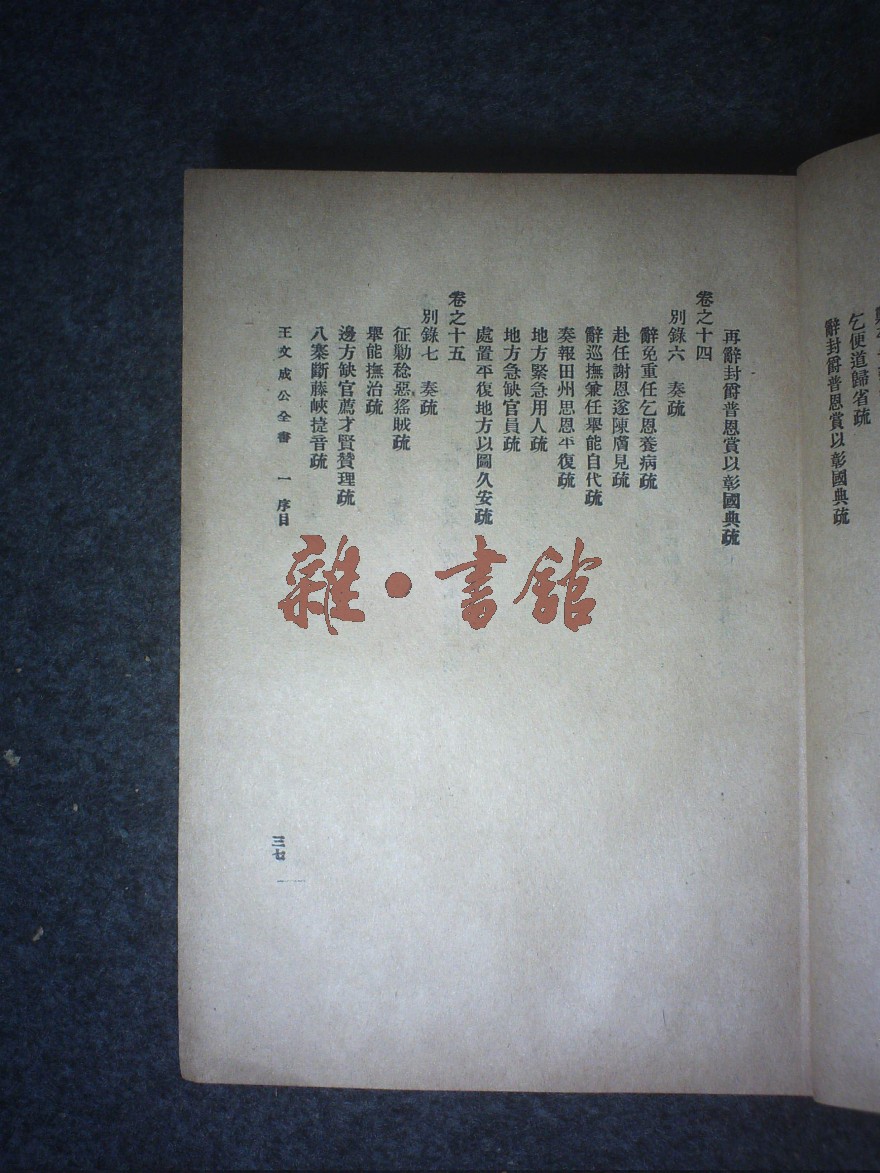 乞便道歸省疏
辭封爵普恩賞以彰國典疏
再辭封爵普恩賞以彰國典疏
卷之十四
別錄六　奏疏
辭免重任乞恩養病疏
赴任謝恩遂陳膚見疏
辭巡撫兼任舉能自代疏
奏報田州思恩平復疏
地方緊急用人疏
地方急缺官員疏
處置平復地方以圖久安疏
卷之十五
別錄七　奏疏
征勦稔惡猺賊疏
舉能撫治疏
邊方缺官薦才賢贊理疏
八寨斷藤峽捷音疏
王文成公全書　一　序目
三七
雜·書館